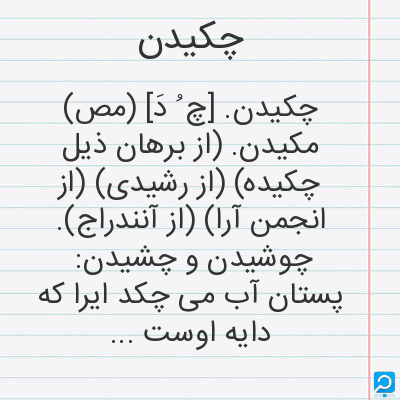 چکیدن
چکیدن. [چ ُ دَ] (مص)
مکیدن. (از برهان ذیل
چکیده) (از رشیدی) (از
انجمن آرا) (از آنندراج).
چوشیدن و چشیدن:
پستان آب می چکد ایرا که
دایه اوست ...